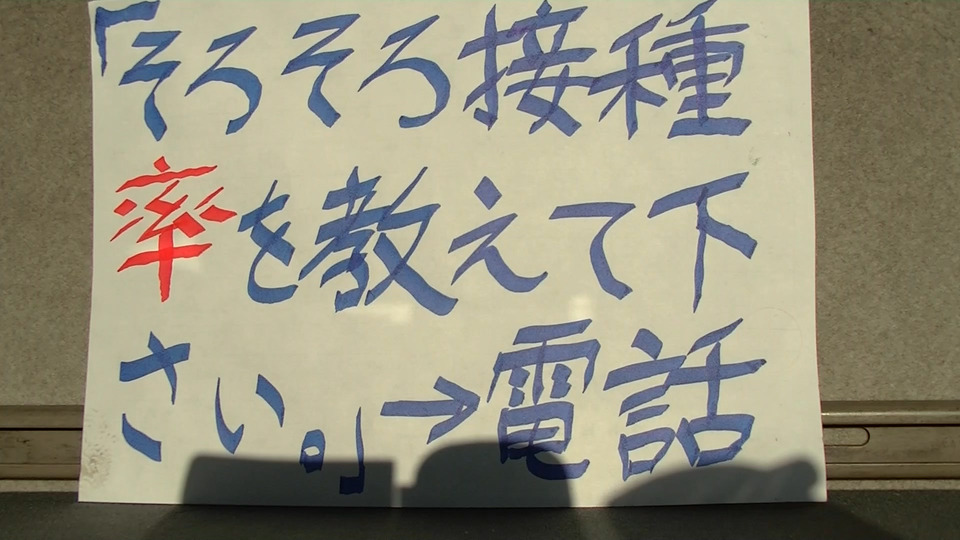 「そろそろ接種
率を教えて下
さい。」→電話